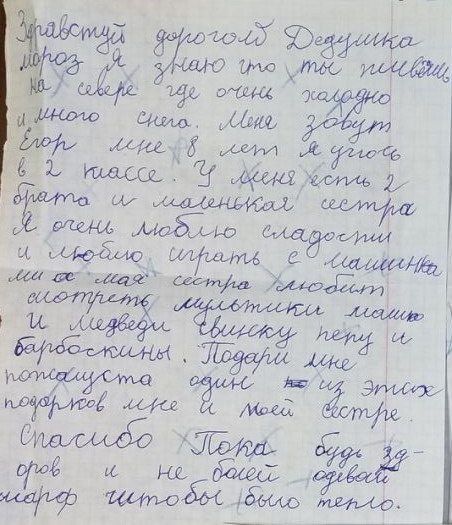 Здравствуй дорогой Дедушка
мороз я знаю что ты живёшь
на севере где очень холодно
и много снега. Меня зовут
Егор мне 8 лет я учюсь
в 2 классе. У меня есть 2
брата и маленькая сестра
Я очень люблю сладости
и люблю играть с машинка
ми а мая сестра любит
смотреть мультики маша
И медведи свинку пепу и
барбоскины. Подари мне
пожалуста один из этих
подарков мне и моей сестре.
Спасибо Пока будь зд-
оров и не болей одевай
шарф чштобы было тепло.